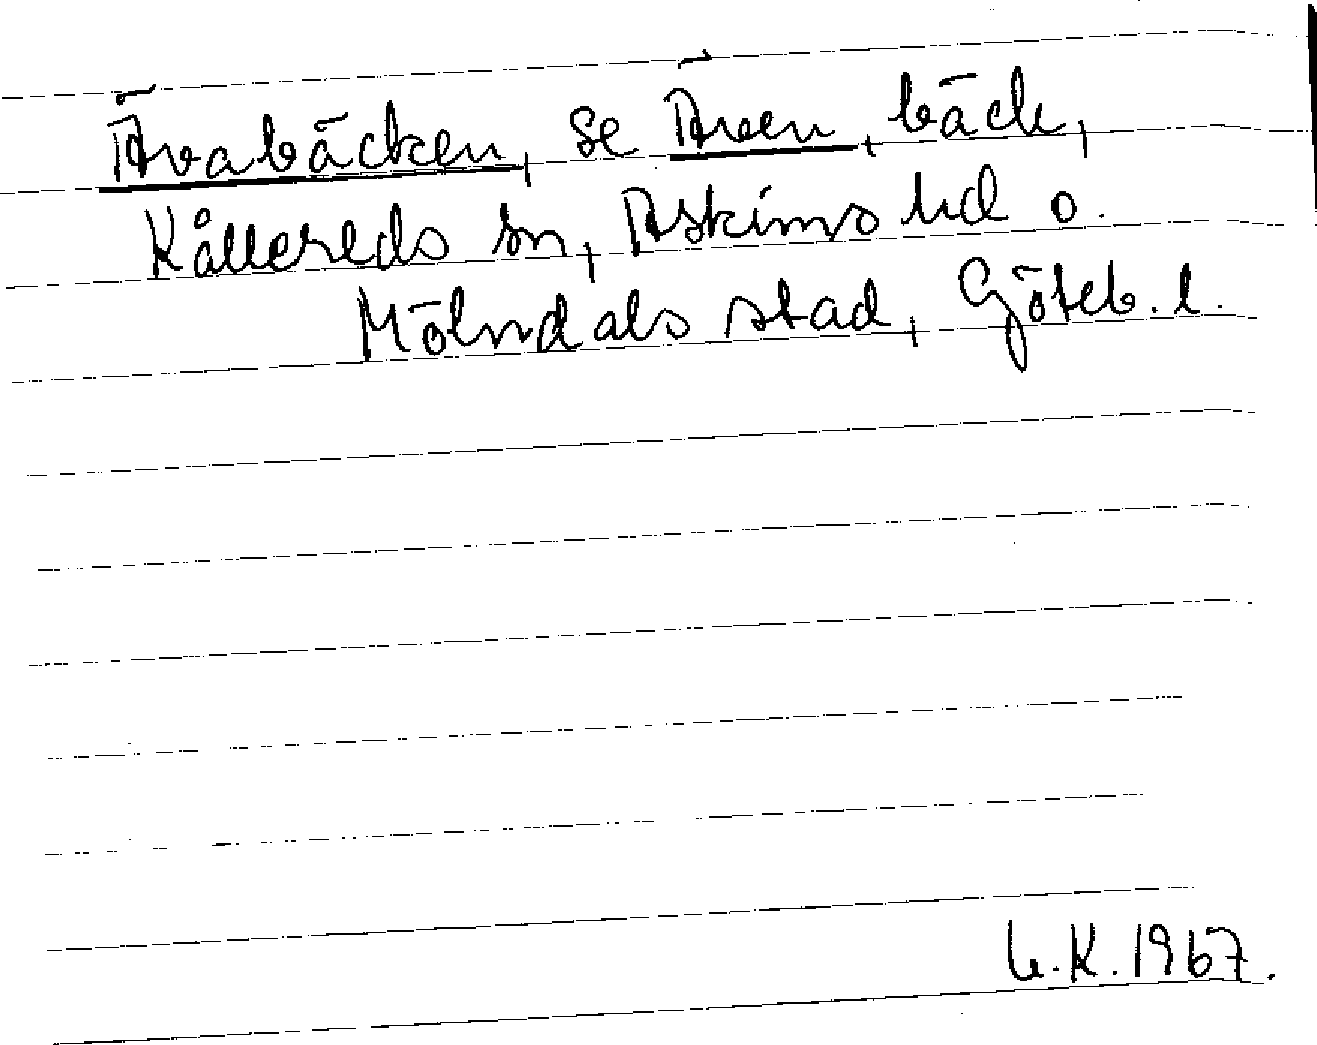 Ärvabäcken, se Ärven, bäck,
Kållereds sn, Askims hd o.
Mölndals stad, Göteb. l.
K. 1967.